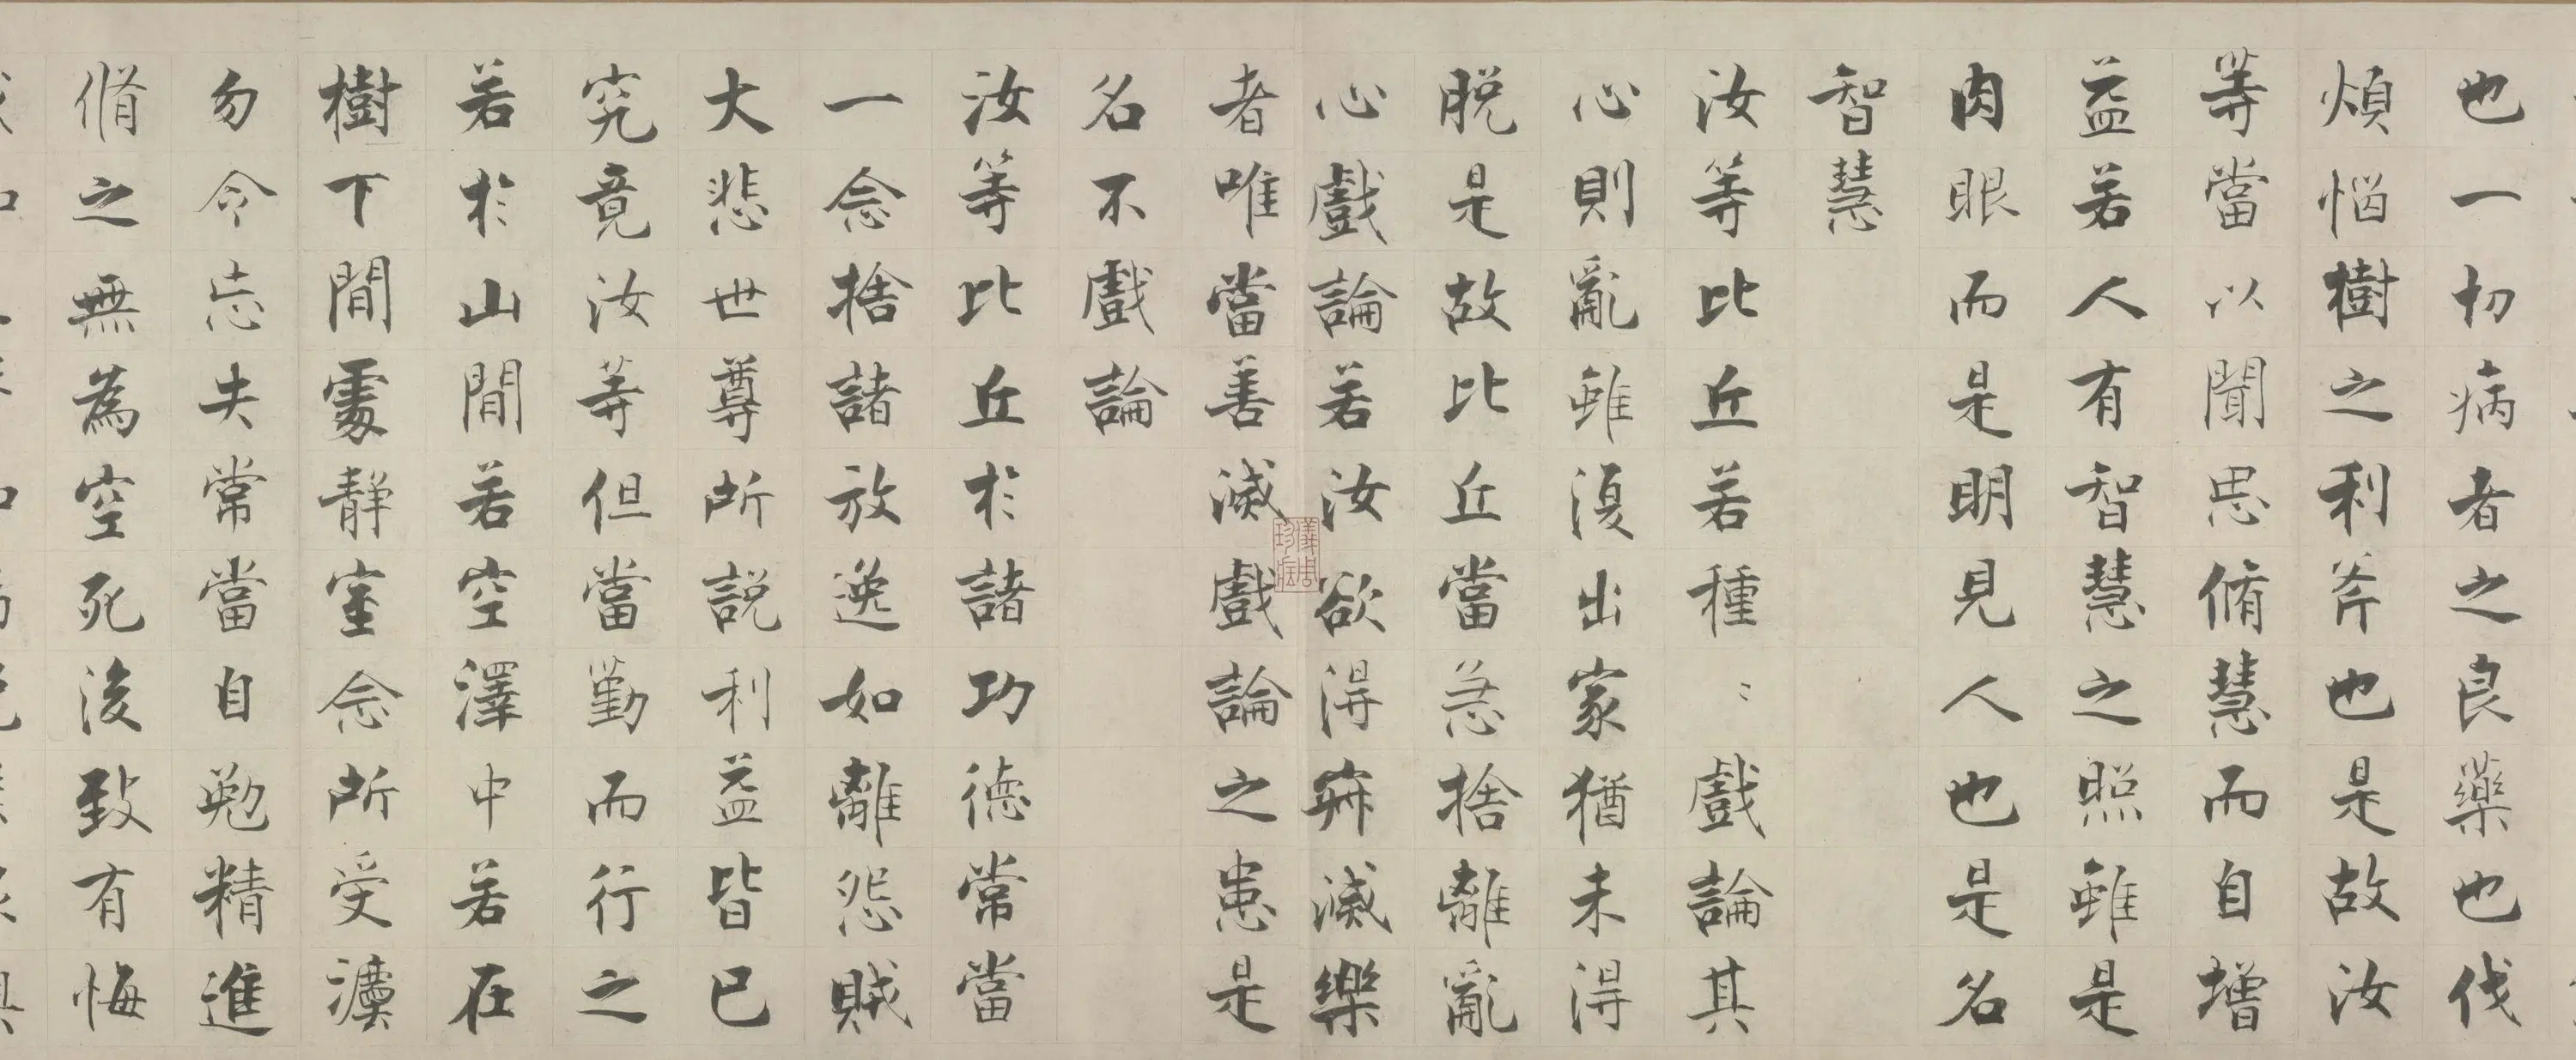 也一切病者之良藥也伐
煩惱樹之利斧也是故汝
等當以聞思脩慧而自增
益若人有智慧之照雖是
肉眼而是明見人也是名
智慧
汝等比丘若種〻戲論其
心則亂雖復出家猶未得
脱是故比丘當急捨離亂
心戲論若汝欲得寂滅樂
者唯當善滅戲論之患是
名不戲論
汝等比丘於諸功德常當
一念捨諸放逸如離怨賊
大悲世尊所説利益皆已
究竟汝等但當勤而行之
若於山間若空澤中若在
樹下閒處靜室念所受
勿令忘失常當自勉精進
脩之無為空死後致有悔